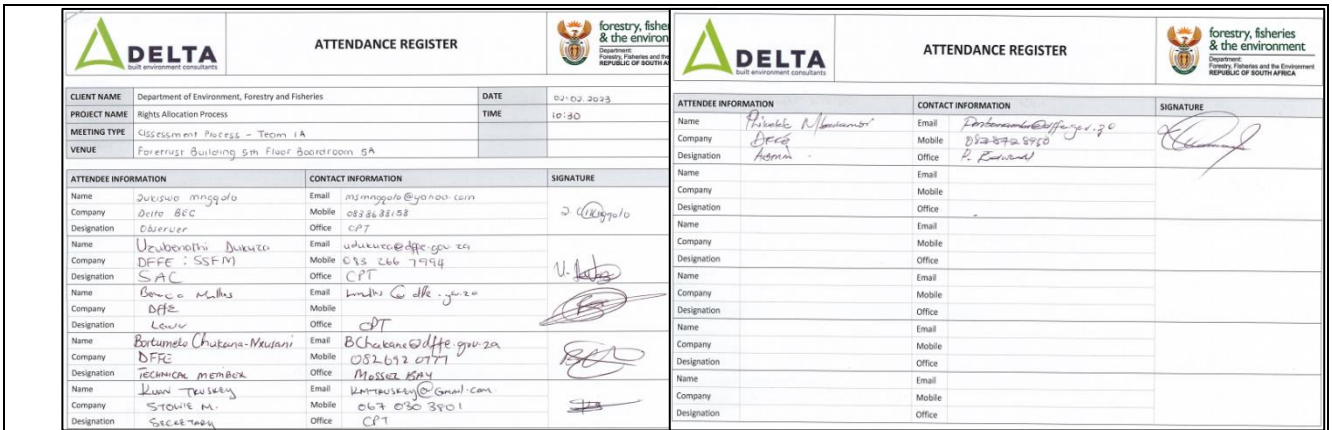 DELTA
built environment consultants
ATTENDANCE REGISTER
forestry, fisher
& the environ
Department:
Forestry, Fisheries and the
REPUBLIC OF SOUTH A
CLIENT NAME Department of Environment, Forestry and Fisheries DATE 02-02-2023
PROJECT NAME Rights Allocation Process TIME 10:30
MEETING TYPE Assessment Process - Team 1A
VENUE Foretrust Building 5th Floor Boardroom 5A
ATTENDEE INFORMATION CONTACT INFORMATION SIGNATURE
Name mnqgolo Email
Company Delta BEC Mobile 0838638158
Designation Observer Office CPT
Name Uzubenathi Dukuza Email udukuza@dffe.gov.za
Company DFFE : SSFM Mobile 083 266 7994
Designation SAC Office CPT
Name Email
Company DffE Mobile
Designation Office CPT
Name Chukana-Nxusani Email BChakane@dffe.gov.za
Company DFFE Mobile 082 692 0777
Designation TECHNICAL MEMBER Office MOSSEL BAY
Name TRUSKEY Email KMTRUSKEY@Gmail.com
Company M. Mobile 067 030 3801
Designation SECRETARY Office CPT
DELTA
built environment consultants
ATTENDANCE REGISTER
forestry, fisheries
& the environment
Department:
Forestry, Fisheries and the Environment
REPUBLIC OF SOUTH AFRICA
ATTENDEE INFORMATION CONTACT INFORMATION SIGNATURE
Name Email
Company DFFE Mobile
Designation Admin Office
Name Email
Company Mobile
Designation Office
Name Email
Company Mobile
Designation Office
Name Email
Company Mobile
Designation Office
Name Email
Company Mobile
Designation Office
Name Email
Company Mobile
Designation Office